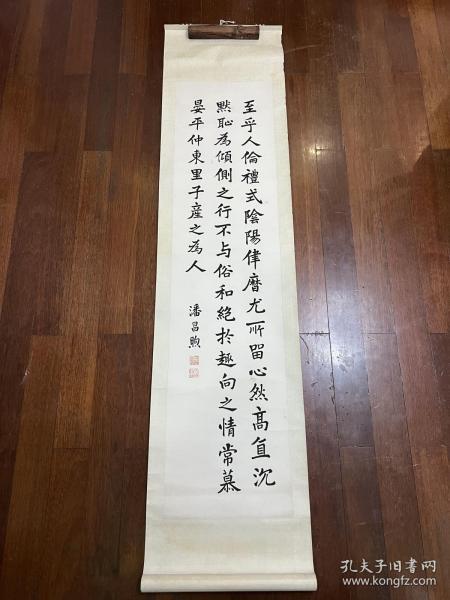 至乎人倫禮式陰陽律曆尤所留心然高直沉
默恥為傾側之行不与俗和絶於趣向之情常慕
晏平仲東里子產之為人
潘昌煦
孔夫子旧书网
www.kongfz.com